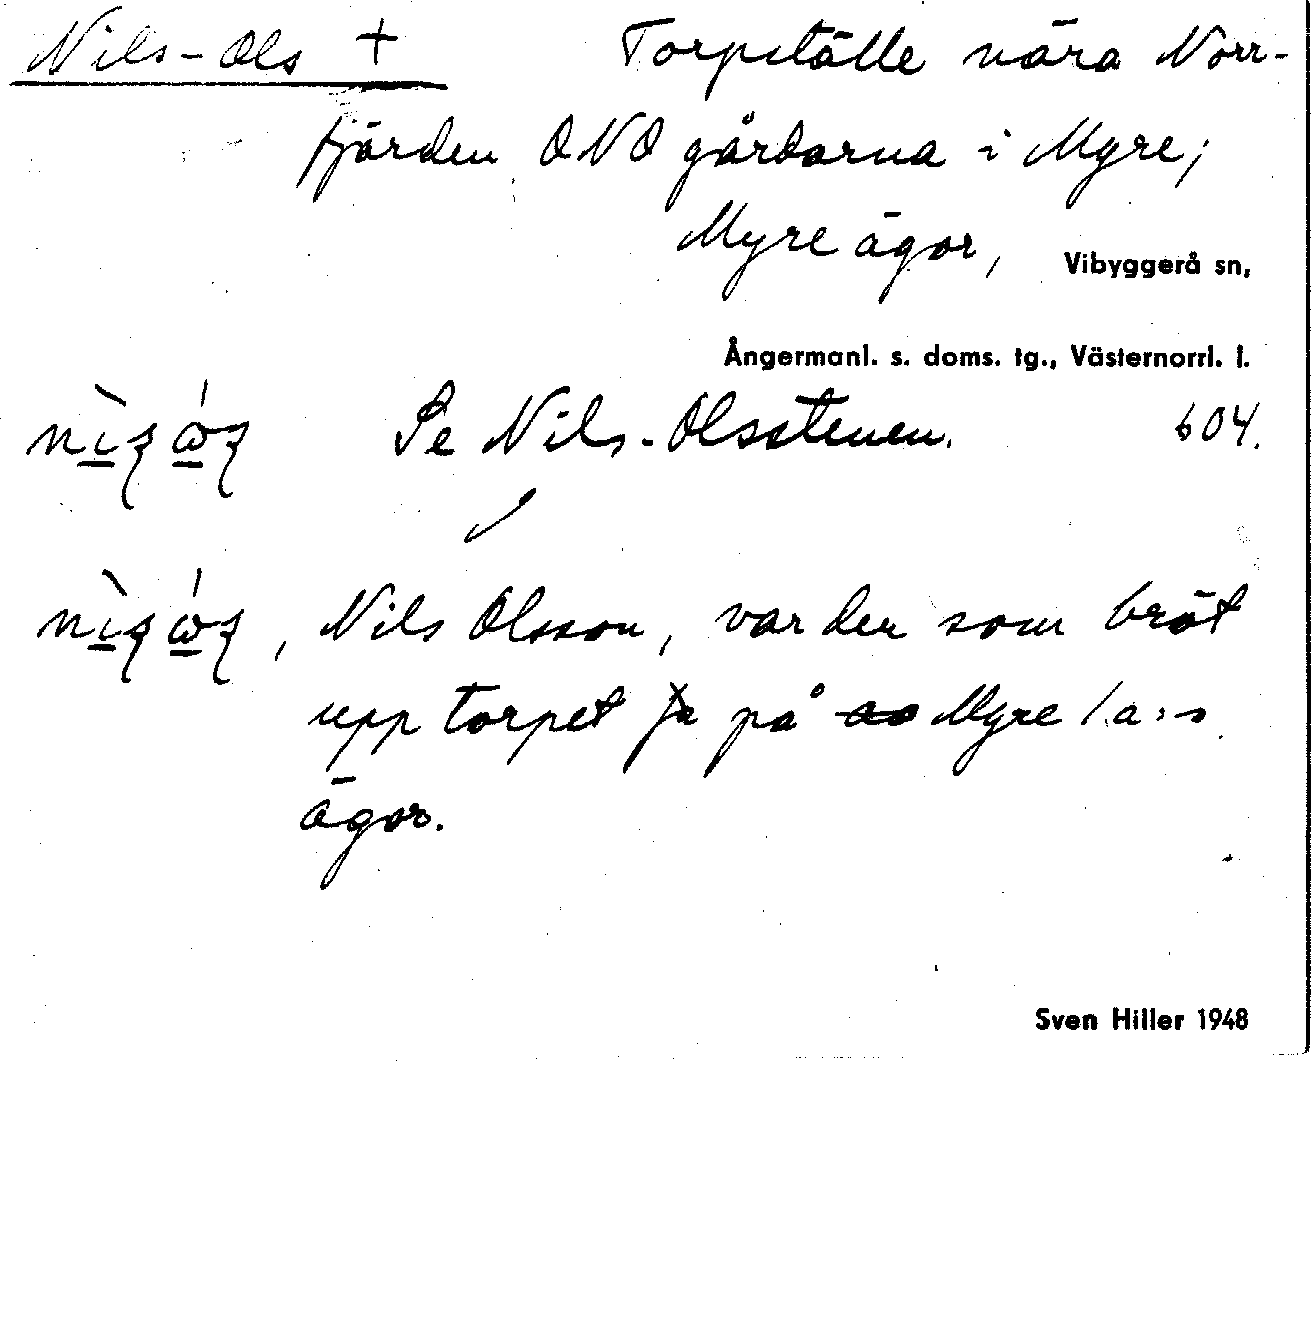 Nils-Ols + Torpställe nära Norr-
fjärden ONO gårdarna i Myre;
Myre ägor, Vibyggerå sn,
Ångermanl. s. doms. tg., Västernorrl. l.
Se Nils-Olsstenen. 604.
, Nils Olsson, var den som bröt
upp torpet på Myre 1a:s
ägor.
Sven Hiller 1948